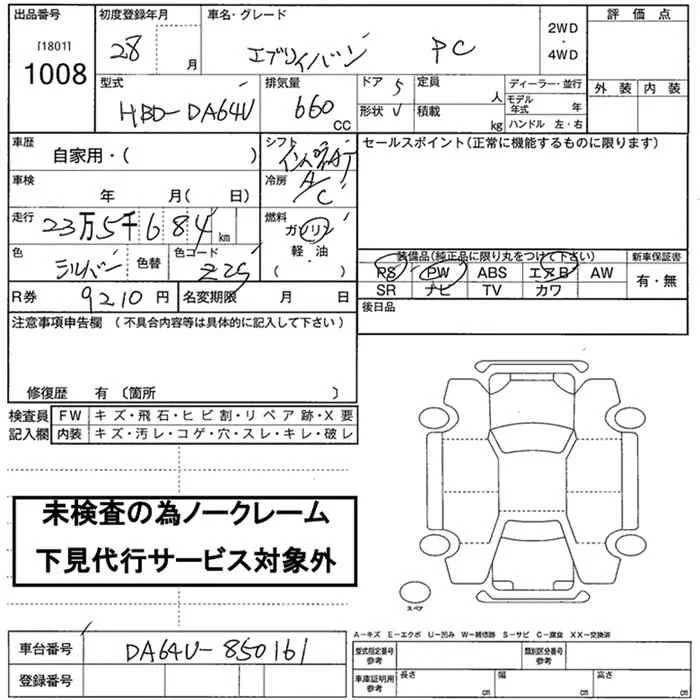 出品番号 初度登録年月 車名・グレード 評価点
[1801] 28 月 エブリィバン PC 2WD・4WD
1008
型式 排気量 ドア 5 定員 人 ディーラー・並行 外装 内装
HBD-DA64V 660 CC 形状 V 積載 kg モデル年式 年
ハンドル 左・右
車歴 シフト セールスポイント(正常に機能するものに限ります)
自家用・( ) インパネAT
車検 冷房
年 月( 日) A/C
走行 燃料
23万5千684 km ガソリン
色 色替 色コード 軽・油 装備品(純正品に限り丸をつけて下さい) 新車保証書
シルバー Z2S ( ) PS PW ABS エアB AW 有・無
R券 9210円 名変期限 月 日 SR ナビ TV カワ
後日品
注意事項申告欄 (不具合内容等は具体的に記入して下さい)
修復歴 有 〔箇所 〕
検査員 FW キズ・飛石・ヒビ割・リペア跡・X要
記入欄 内装 キズ・汚レ・コゲ・穴・スレ・キレ・破レ
未検査の為ノークレーム
下見代行サービス対象外
スペア
A-キズ E-エクボ U-凹み W-補修跡 S-サビ C-腐食 XX-交換済
車台番号 DA64V-850161 型式指定番号 参考 類別区分番号 参考
登録番号 車庫証明用 参考 長さ cm 幅 cm 高さ cm